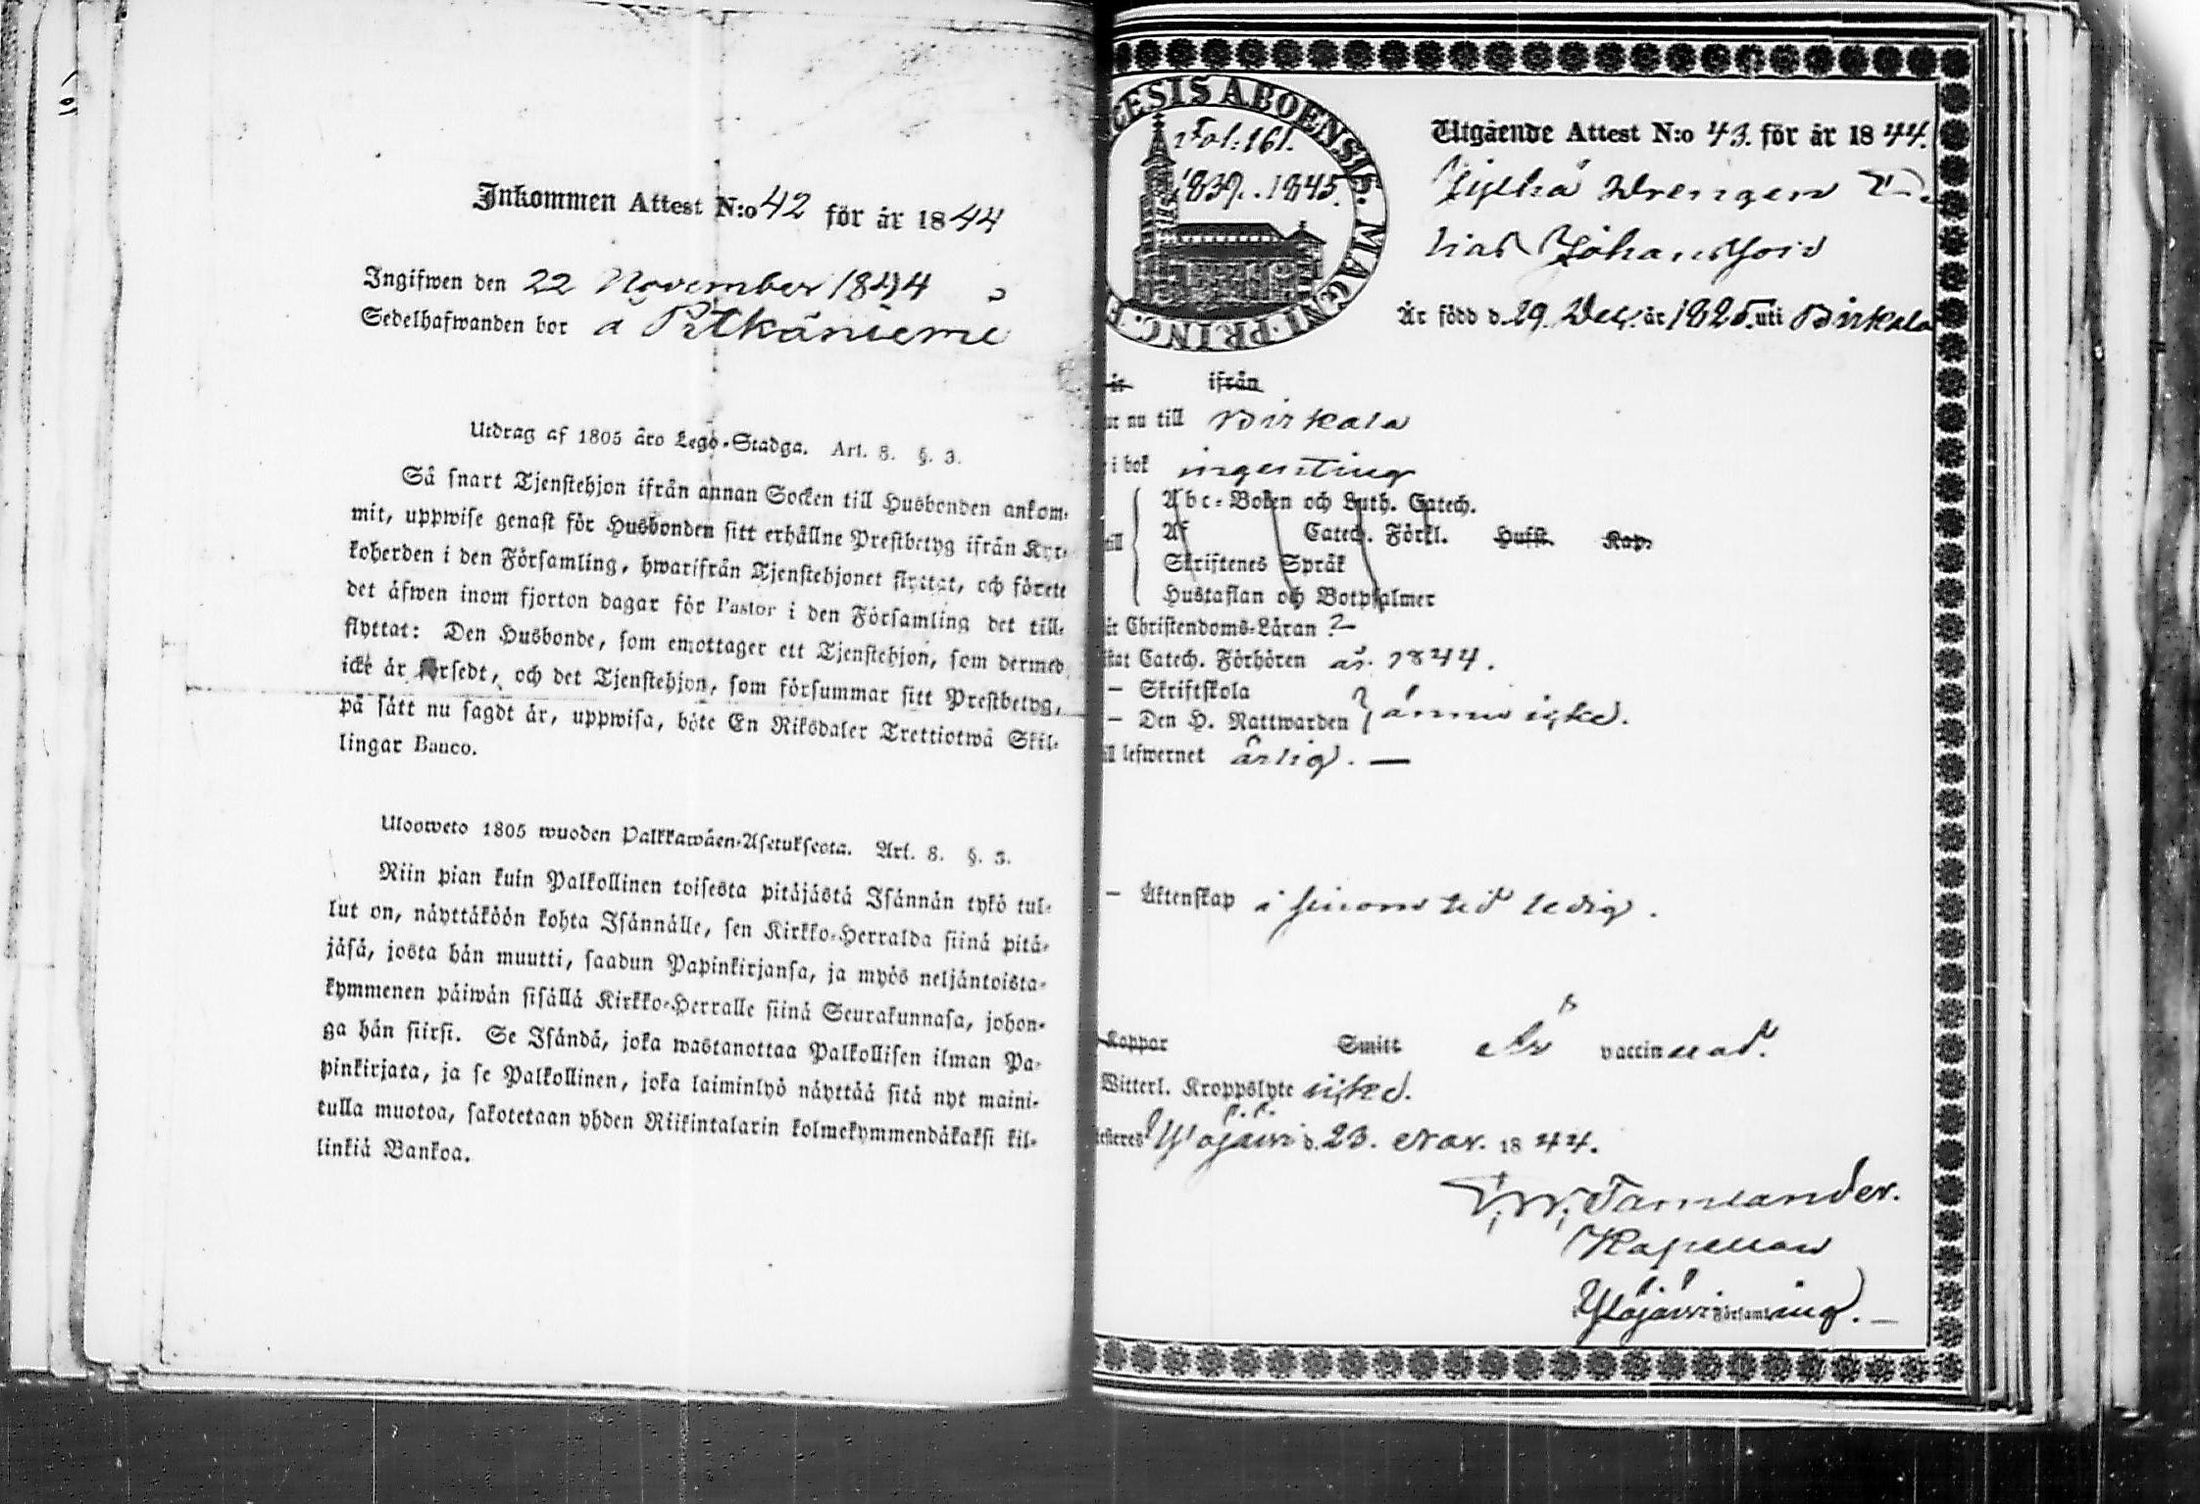 Inkommen Attest N:o 42 för år 1844
Ingifwen den 22 November 1844
Sedelhafwanden bor å Pitkäniemi
Utdrag af 1805 års Lego-Stadga. Art. 8. §. 3.
Så snart Tjenstehjon ifrån annan Socken till Husbonden ankom-
mit, uppwise genast för Husbonden sitt erhållne Prestbetyg ifrån Kyr-
koherden i den Församling, hwarifrån Tjenstehjonet flyttat, och förete
det äfwen inom fjorton dagar för Pastor i den Församling det till-
flyttat: Den Husbonde, som emottager ett Tjenstehjon, som dermed
icke är försedt, och det Tjenstehjon, som försummar sitt Prestbetyg,
på sätt nu sagdt är, uppwisa, böte En Riksdaler Trettiotwå Skil-
lingar Banco.
Uloosweto 1805 wuoden Palkkawäen-Asetuksesta. Art. 8. §. 3.
Niin pian kuin Palkollinen toisesta pitäjästä Isännän tykö tul-
lut on, näyttäköön kohta Isännälle, sen Kirkko-Herralda siinä pitä-
jäsä, josta hän muutti, saadun Papinkirjansa, ja myös neljäntoista-
kymmenen päiwän sisällä Kirkko-Herralle siinä Seurakunnasa, johon-
ga hän siirsi. Se Isändä, joka wastanottaa Palkollisen ilman Pa-
pinkirjata, ja se Palkollinen, joka laiminlyö näyttää sitä nyt maini-
tulla muotoa, sakotetaan yhden Riikintalarin kolmekymmendäkaksi kil-
linkiä Bankoa.
CESIS ABOENSIS. MAGNI PRINC. F
Fol: 161.
1839.-1845.
Utgående Attest N:o 43. för år 1844.
Drengen
Johansson
Är född d. 29. Dec. år 1825. uti Birkala
ifrån
nu till Birkala
i bok ingenting
Abc-Boken och Luth. Catech.
till Af Catech. Förkl. Husst. Kap.
Skriftenes Språk
Hustaflan och Botpsalmer
Christendoms-Läran ?
Catech. Förhören år 1844.
– Skriftskola
– Den H. Nattwarden ännu icke.
lefwernet ärlig. —
– Äktenskap i sinom tid ledig.
Koppor Smitt Är vaccinerad.
Witterl. Kroppslyte icke.
Ylöjärwi d. 23. Nov. 1844.
Tamlander.
Kapellan
Ylöjärwi Församling. —